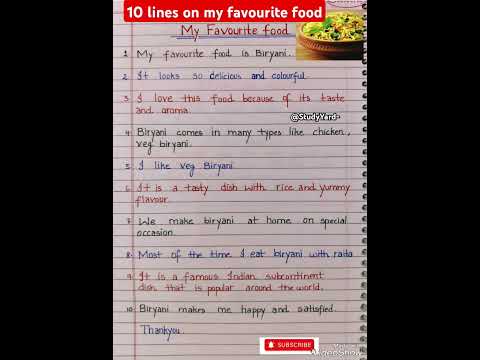 10 lines on my favourite food
My Favourite food
1. My favourite food is Biryani.
2. It looks so delicious and colourful.
3. I love this food because of its taste
and aroma.
@StudyYard-
4. Biryani comes in many types like chicken,
veg biryani.
5. I like veg Biryani.
6. It is a tasty dish with rice and yummy
flavour.
7. We make biryani at home on special
occasion.
8. Most of the time I eat biryani with raita
9. It is a famous Indian subcontinent
dish that is popular around the world.
10. Biryani makes me happy and satisfied.
Thankyou.
SUBSCRIBE